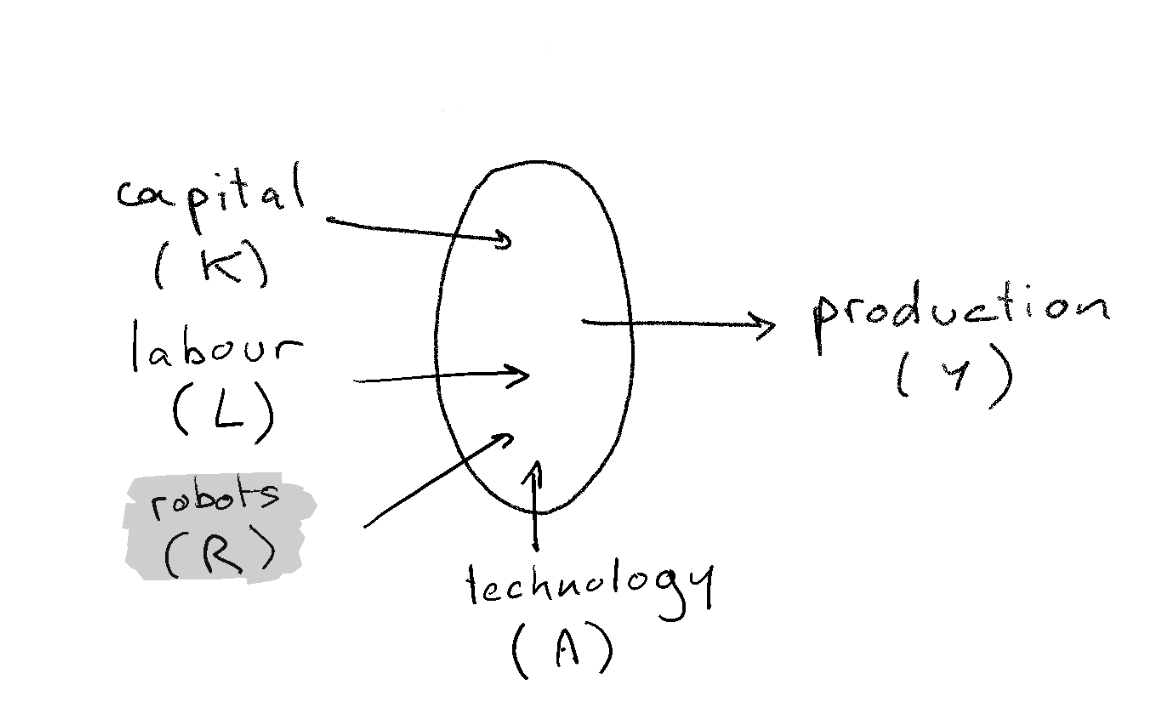 capital
(K)
labour
(L)
robots
(R)
technology
(A)
production
(Y)